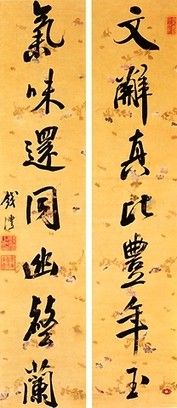 文辭真比豐年玉
氣味還同幽壑蘭
錢灃